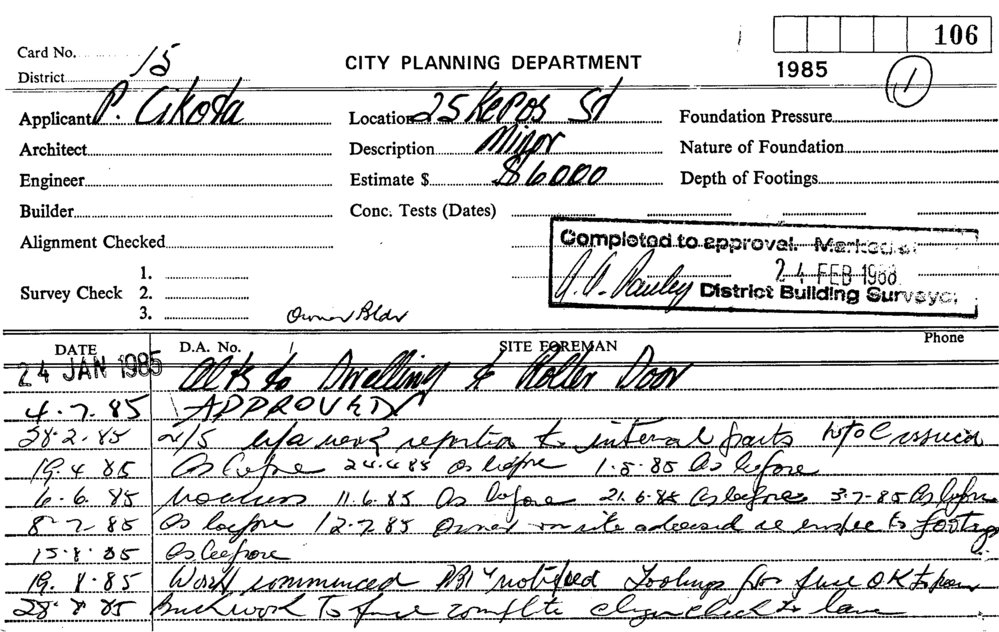 106
Card No. 15
CITY PLANNING DEPARTMENT
1985
1
District
Applicant P. Cikota
Location 25 Kepos St
Foundation Pressure
Architect
Description Minor
Nature of Foundation
Engineer
Estimate $ $6000
Depth of Footings
Builder
Conc. Tests (Dates)
Alignment Checked
Completed to approval. Marked
24 FEB 1988
District Building Surveyor
Survey Check 1.
2.
3.
Owner Bldr
DATE D.A. No. SITE FOREMAN Phone
24 JAN 1985 Alts to Dwelling & Roller Door
4.7.85 APPROVED
28.2.85 work internal parts issued
19.4.85 As before 24.4.85 as before 1.5.85 As before
6.6.85 11.6.85 As before 21.6.85 As before 3.7.85 As before
8.7.85 As before 12.7.85 Owner on site advised re to footings
15.8.85 As before
19.8.85 Work commenced notified footings for OK to pour
28.8.85 Brickwork to complete check to lane